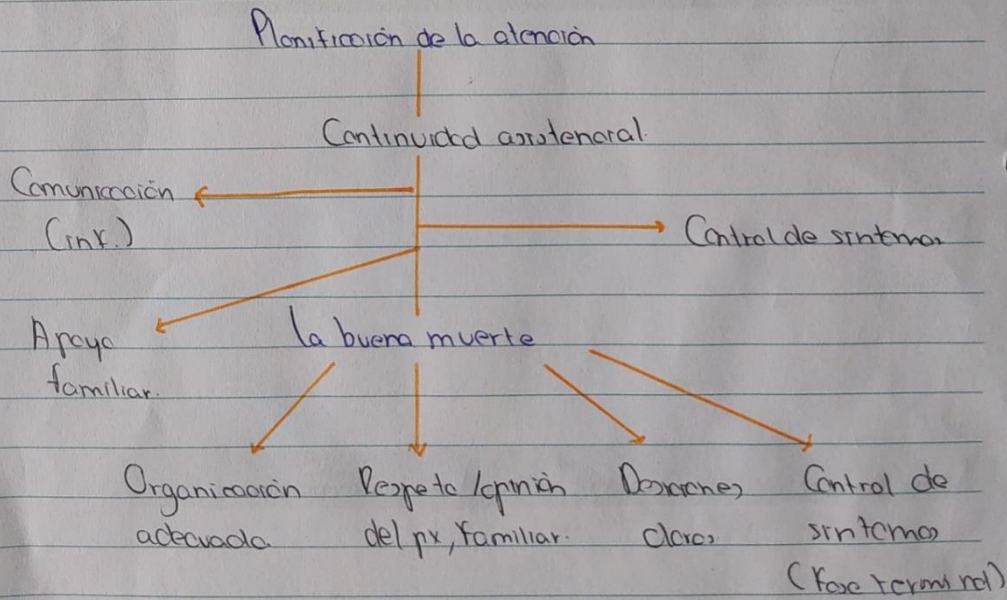 Planificación de la atención
Continuidad asistencial.
Comunicación
(int.)
Control de síntomas
Apoyo
familiar.
la buena muerte
Organización
adecuada
Respeto/opinión
del px, familiar.
Decisiones
claras
Control de
síntomas
(fase terminal)